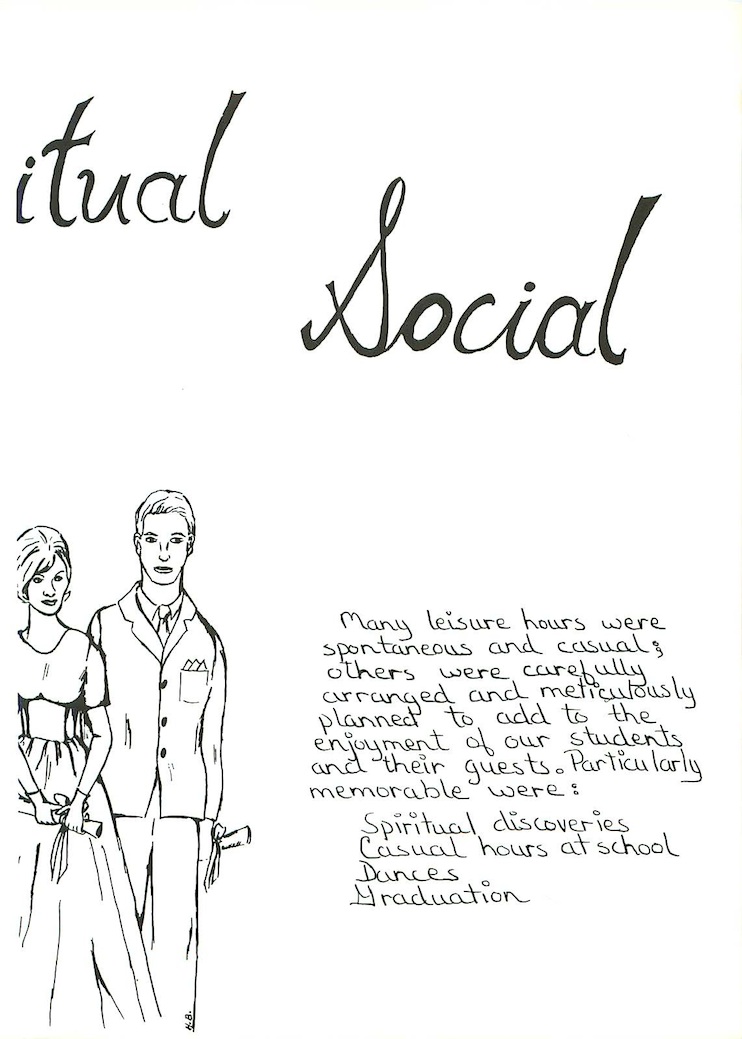 itual
Social
Many leisure hours were
spontaneous and casual;
others were carefully
arranged and meticulously
planned to add to the
enjoyment of our students
and their guests. Particularly
memorable were:
Spiritual discoveries
Casual hours at school
Dances
Graduation
H.B.